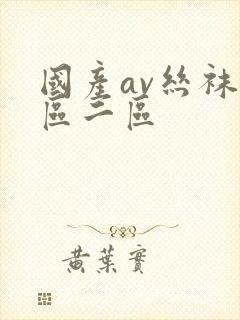 國產av絲袜
區二區
黃葉實